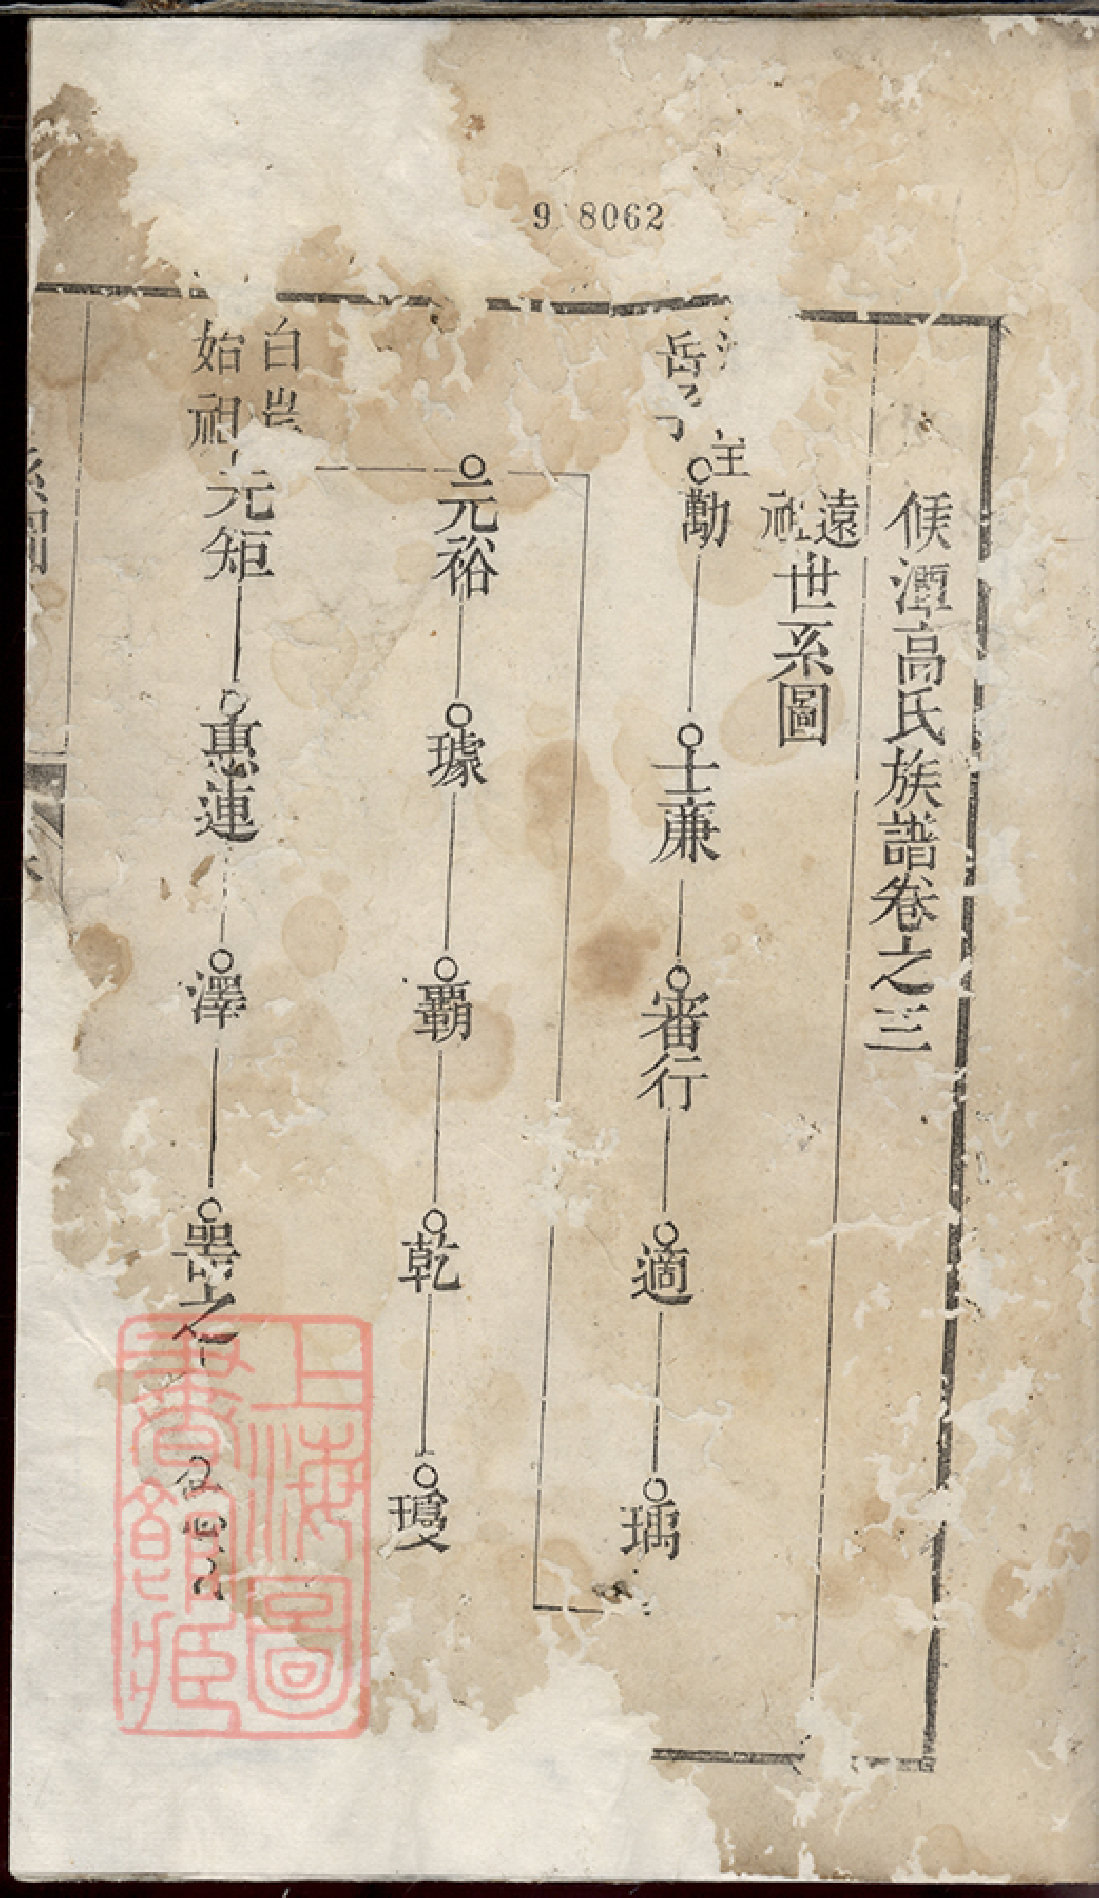 9 8062
候潭高氏族譜卷之三
遠祖世系圖
岳
勱
士廉
審行
適
瑀
元裕
璩
覇
乾
白
始祖
元矩
惠連
澤
噐之
上海圖書館藏